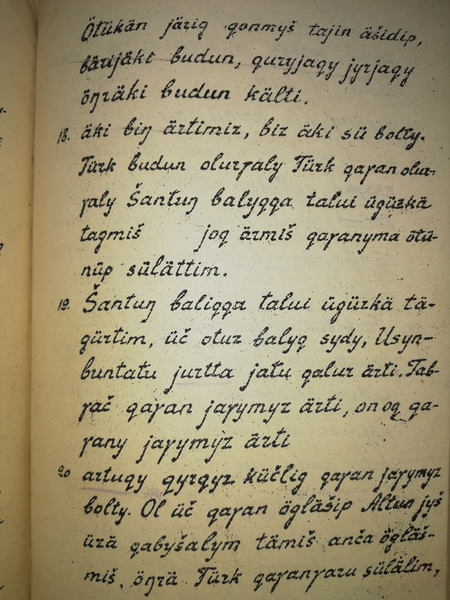 Ötükän järig qonmyš tajin äšidip,
bärijäki budun, quryjaqy jyrjaqy
öŋräki budun kälti.
18. äki biŋ ärtimiz, biz äki sü bolty.
Türk budun olurγaly Türk qaγan olur-
γaly Šantuŋ balyqqa talui ügüzkä
tagmiš joq ärmiš qaγanyma ötü-
nüp sülättim.
19. Šantuŋ baliqqa talui ügüzkä tä-
gürtim, üč otuz balyq sydy, Usyn-
buntatu jurtta jatu qalur ärti. Tab-
γač qaγan jaγymyz ärti, on oq qa-
γany jaγymyz ärti
20 artuqy qyrqyz küčlig qaγan jaγymyz
bolty. Ol üč qaγan öglášip Altun jyš
üzä qabyšalym tämiš anča ögläš-
miš, öŋrä Türk qaγanγaru sülälim,